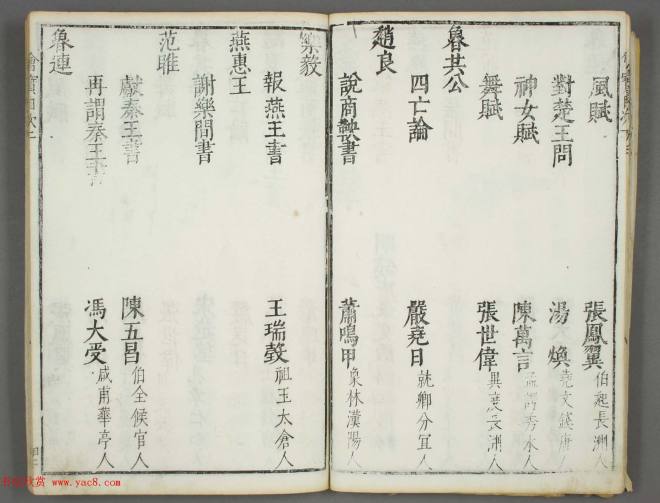 風賦 張鳳翼 伯起長洲人
對楚王問 湯煥 堯文錢唐
神女賦 陳萬言 秀水人
舞賦 張世偉 異度長洲人
魯共公
四亡論 嚴堯日 就卿分宜人
趙良
說商鞅書 蕭鳴甲 象林漢陽人
樂毅
報燕王書 王瑞𤩽 祖玉太倉人
燕惠王
謝樂間書
范雎
獻秦王書 陳五昌 伯全候官人
再謂秦王書 馮大受 咸甫華亭人
魯連
www.yac8.com